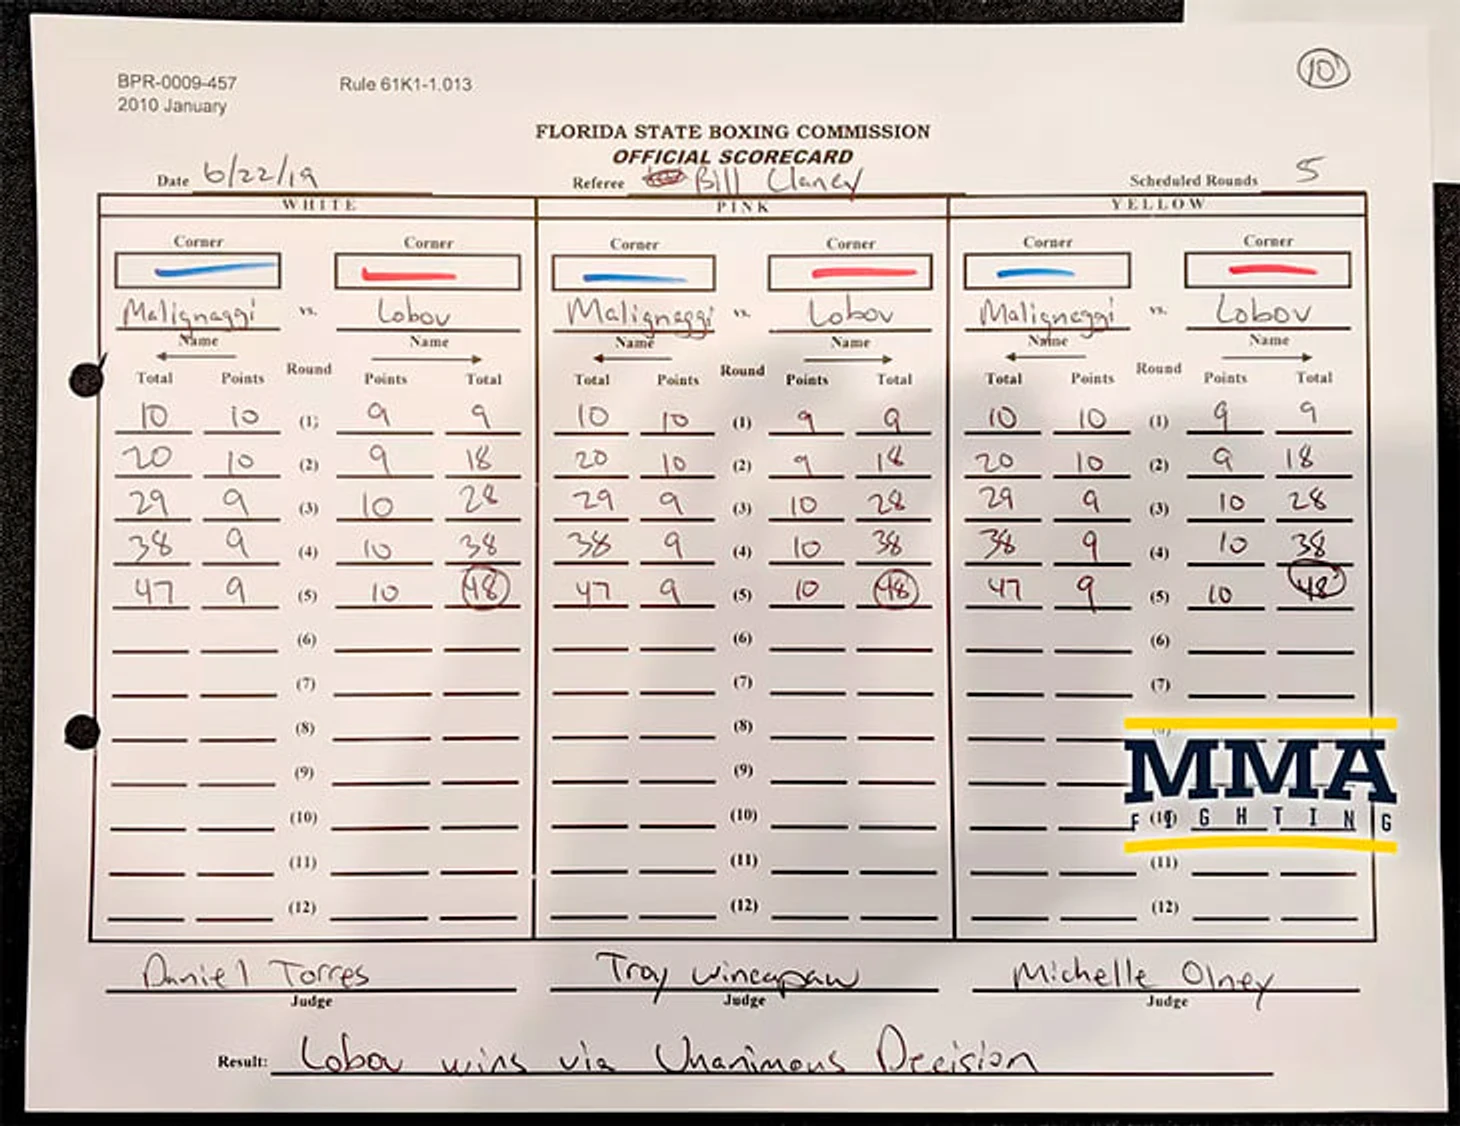 10
BPR-0009-457 Rule 61K1-1.013
2010 January
FLORIDA STATE BOXING COMMISSION
OFFICIAL SCORECARD
Date 6/22/19 Referee Bill Clancy Scheduled Rounds 5
WHITE PINK YELLOW
Corner Corner Corner Corner Corner Corner
Malignaggi vs. Lobov Malignaggi vs. Lobov Malignaggi vs. Lobov
Name Name Name Name Name Name
Total Points Round Points Total Total Points Round Points Total Total Points Round Points Total
10 10 (1) 9 9 10 10 (1) 9 9 10 10 (1) 9 9
20 10 (2) 9 18 20 10 (2) 9 18 20 10 (2) 9 18
29 9 (3) 10 28 29 9 (3) 10 28 29 9 (3) 10 28
38 9 (4) 10 38 38 9 (4) 10 38 38 9 (4) 10 38
47 9 (5) 10 48 47 9 (5) 10 48 47 9 (5) 10 48
(6) (6) (6)
(7) (7) (7)
(8) (8)
(9) (9)
MMA
(10) (10) (10)
FIGHTING
(11) (11) (11)
(12) (12) (12)
Daniel Torres Troy Wincapaw Michelle Olney
Judge Judge Judge
Result: Lobov wins via Unanimous Decision